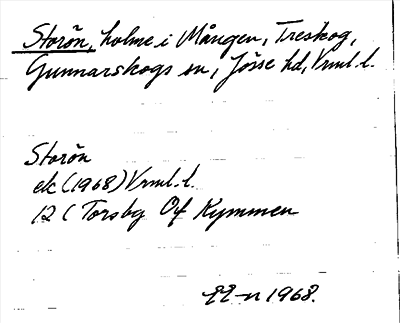 Storön, holme i Mången, Treskog,
Gunnarskogs sn, Jösse hd, Vrml. l.
Storön
ek (1968) Vrml. l.
12 C Torsby Öf Kymmen
1968.